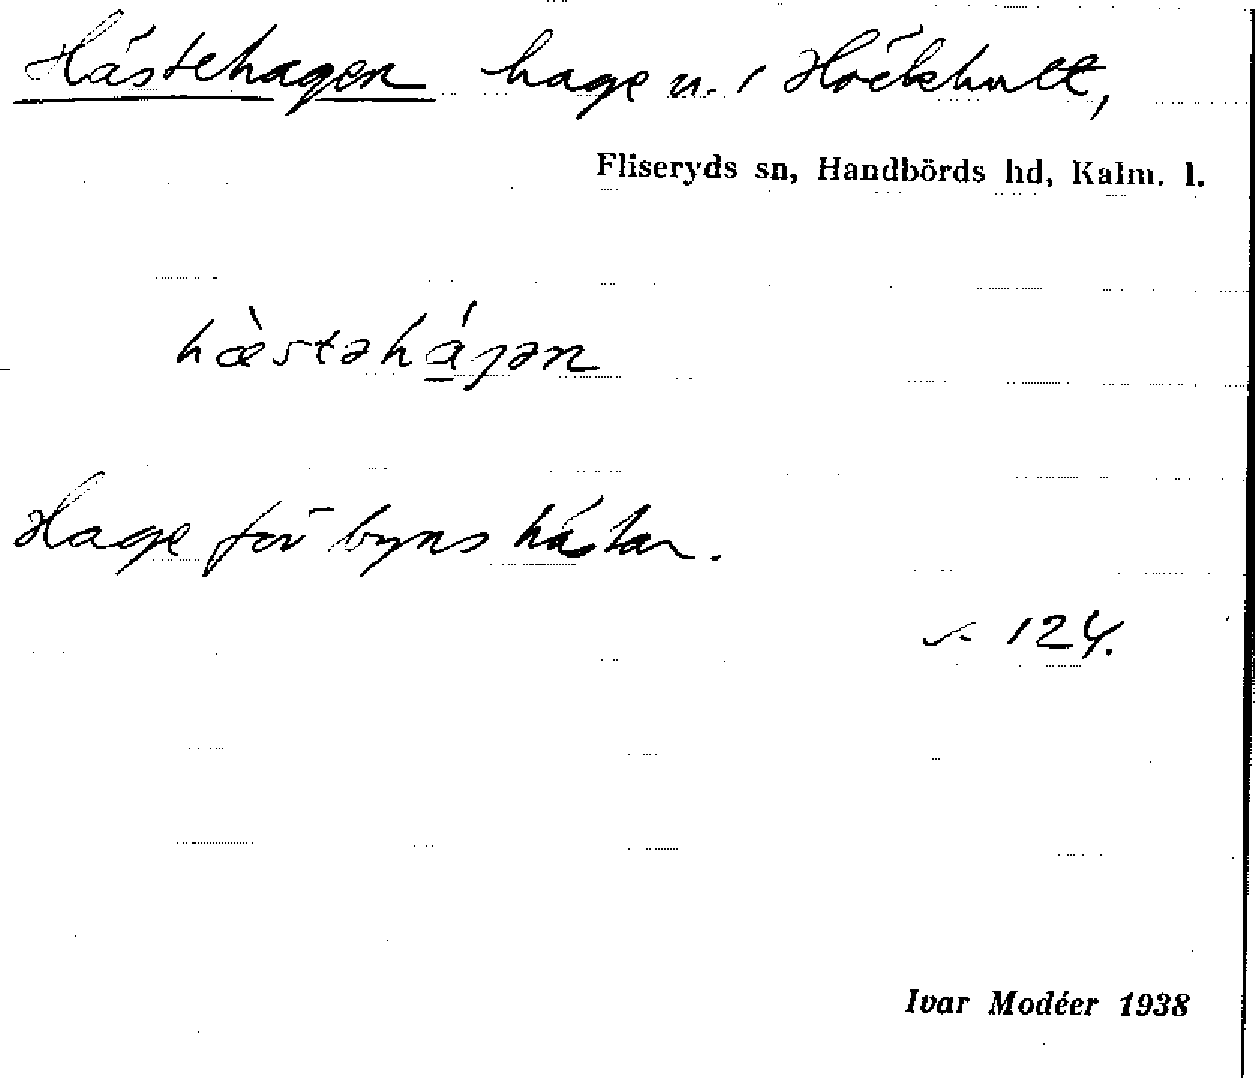 Hästehagen hage n. i Hökhult,
Fliseryds sn, Handbörds hd, Kalm. l.
hæ̀stəhá̱ɡən
Hage för byns hästar.
s. 124.
Ivar Modéer 1938